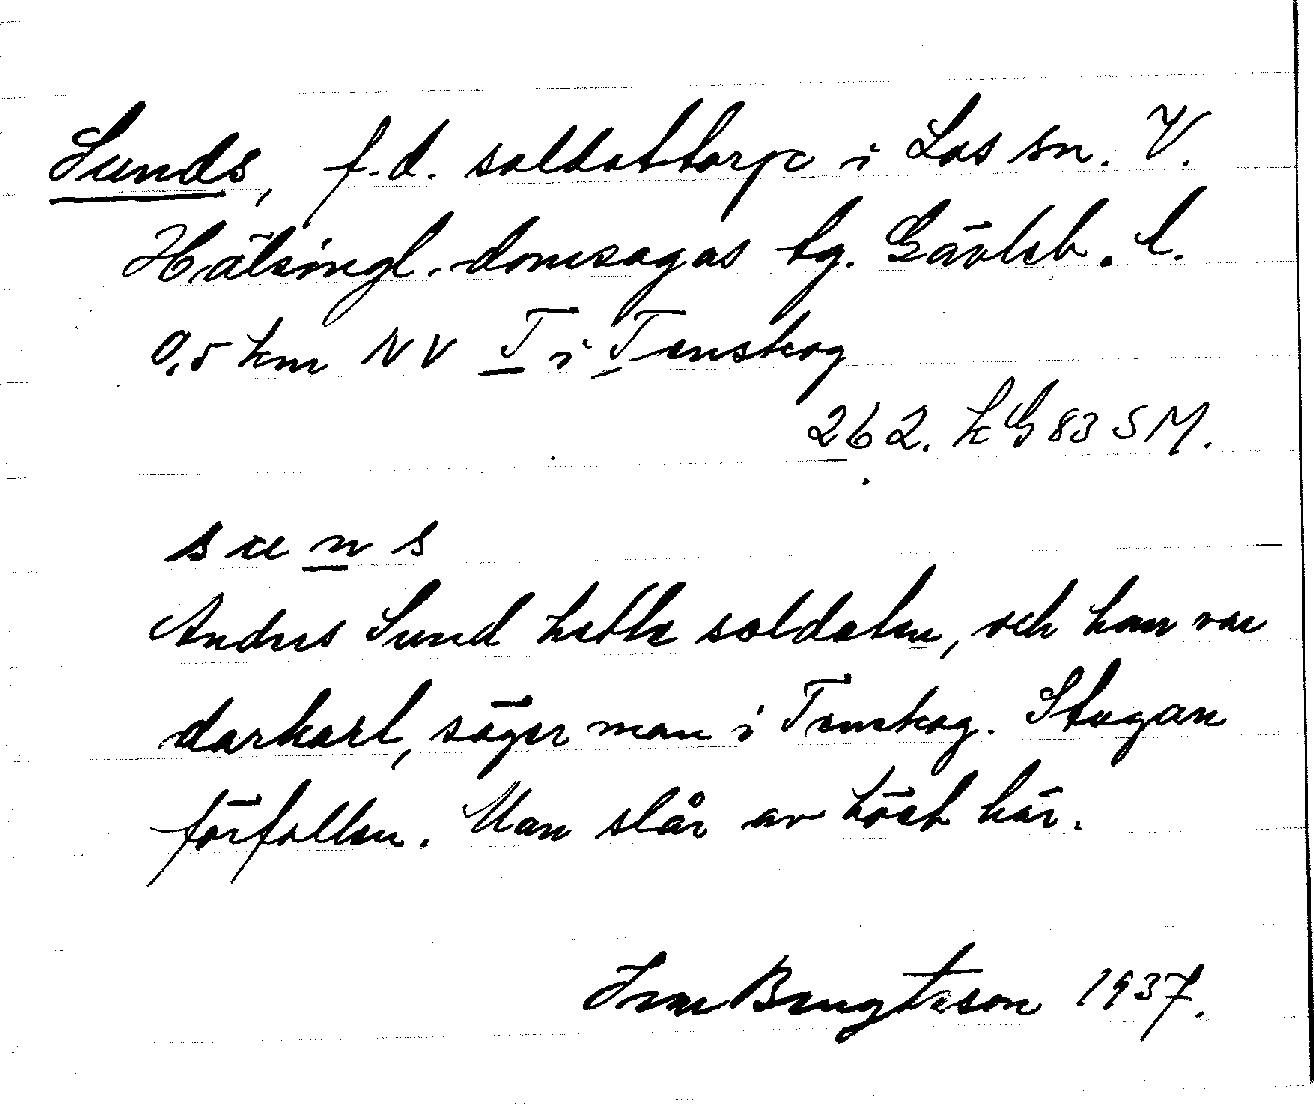 Sunds, f.d. soldattorp i Los sn. V.
Hälsingl. domsagas tg. Gävleb. l.
0,5 km NV T i Tenskog
262. kG 83 SM.
s u n s
Anders Sund hette soldaten, och han var
darkarl, säger man i Tenskog. Stugan
förfallen. Man slår av höet här.
Bengtsson 1937.